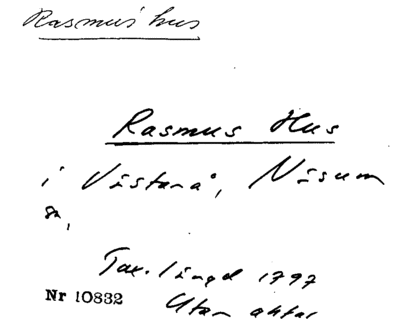 Rasmus hus
Rasmus Hus
i Västanå, Näsum
sn,
Tax. längd 1797
Nr 10832 Utan åbtal